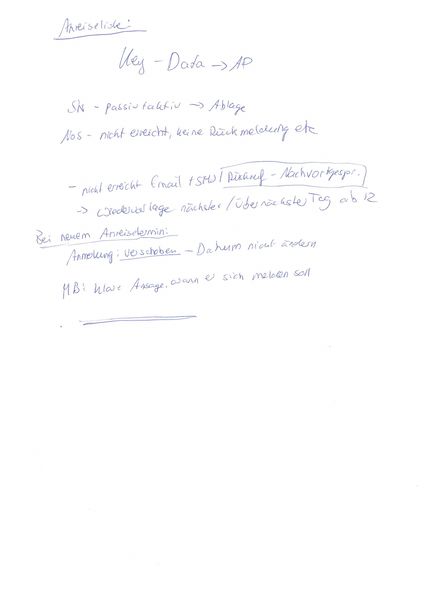 Anreiseliste:
Key - Data → AP
SNs - passiv/aktiv → Ablage
NOS - nicht erreicht, keine Rückmeldung etc
- nicht erreicht Email + SMS / Rückruf - Nachvortgespr.
→ Wiedervorlage nächster / übernächster Tag ab 12
Bei neuem Anreisetermin:
Anmeldung: verschoben - Datum nicht ändern
MB: klare Ansage, wann er sich melden soll